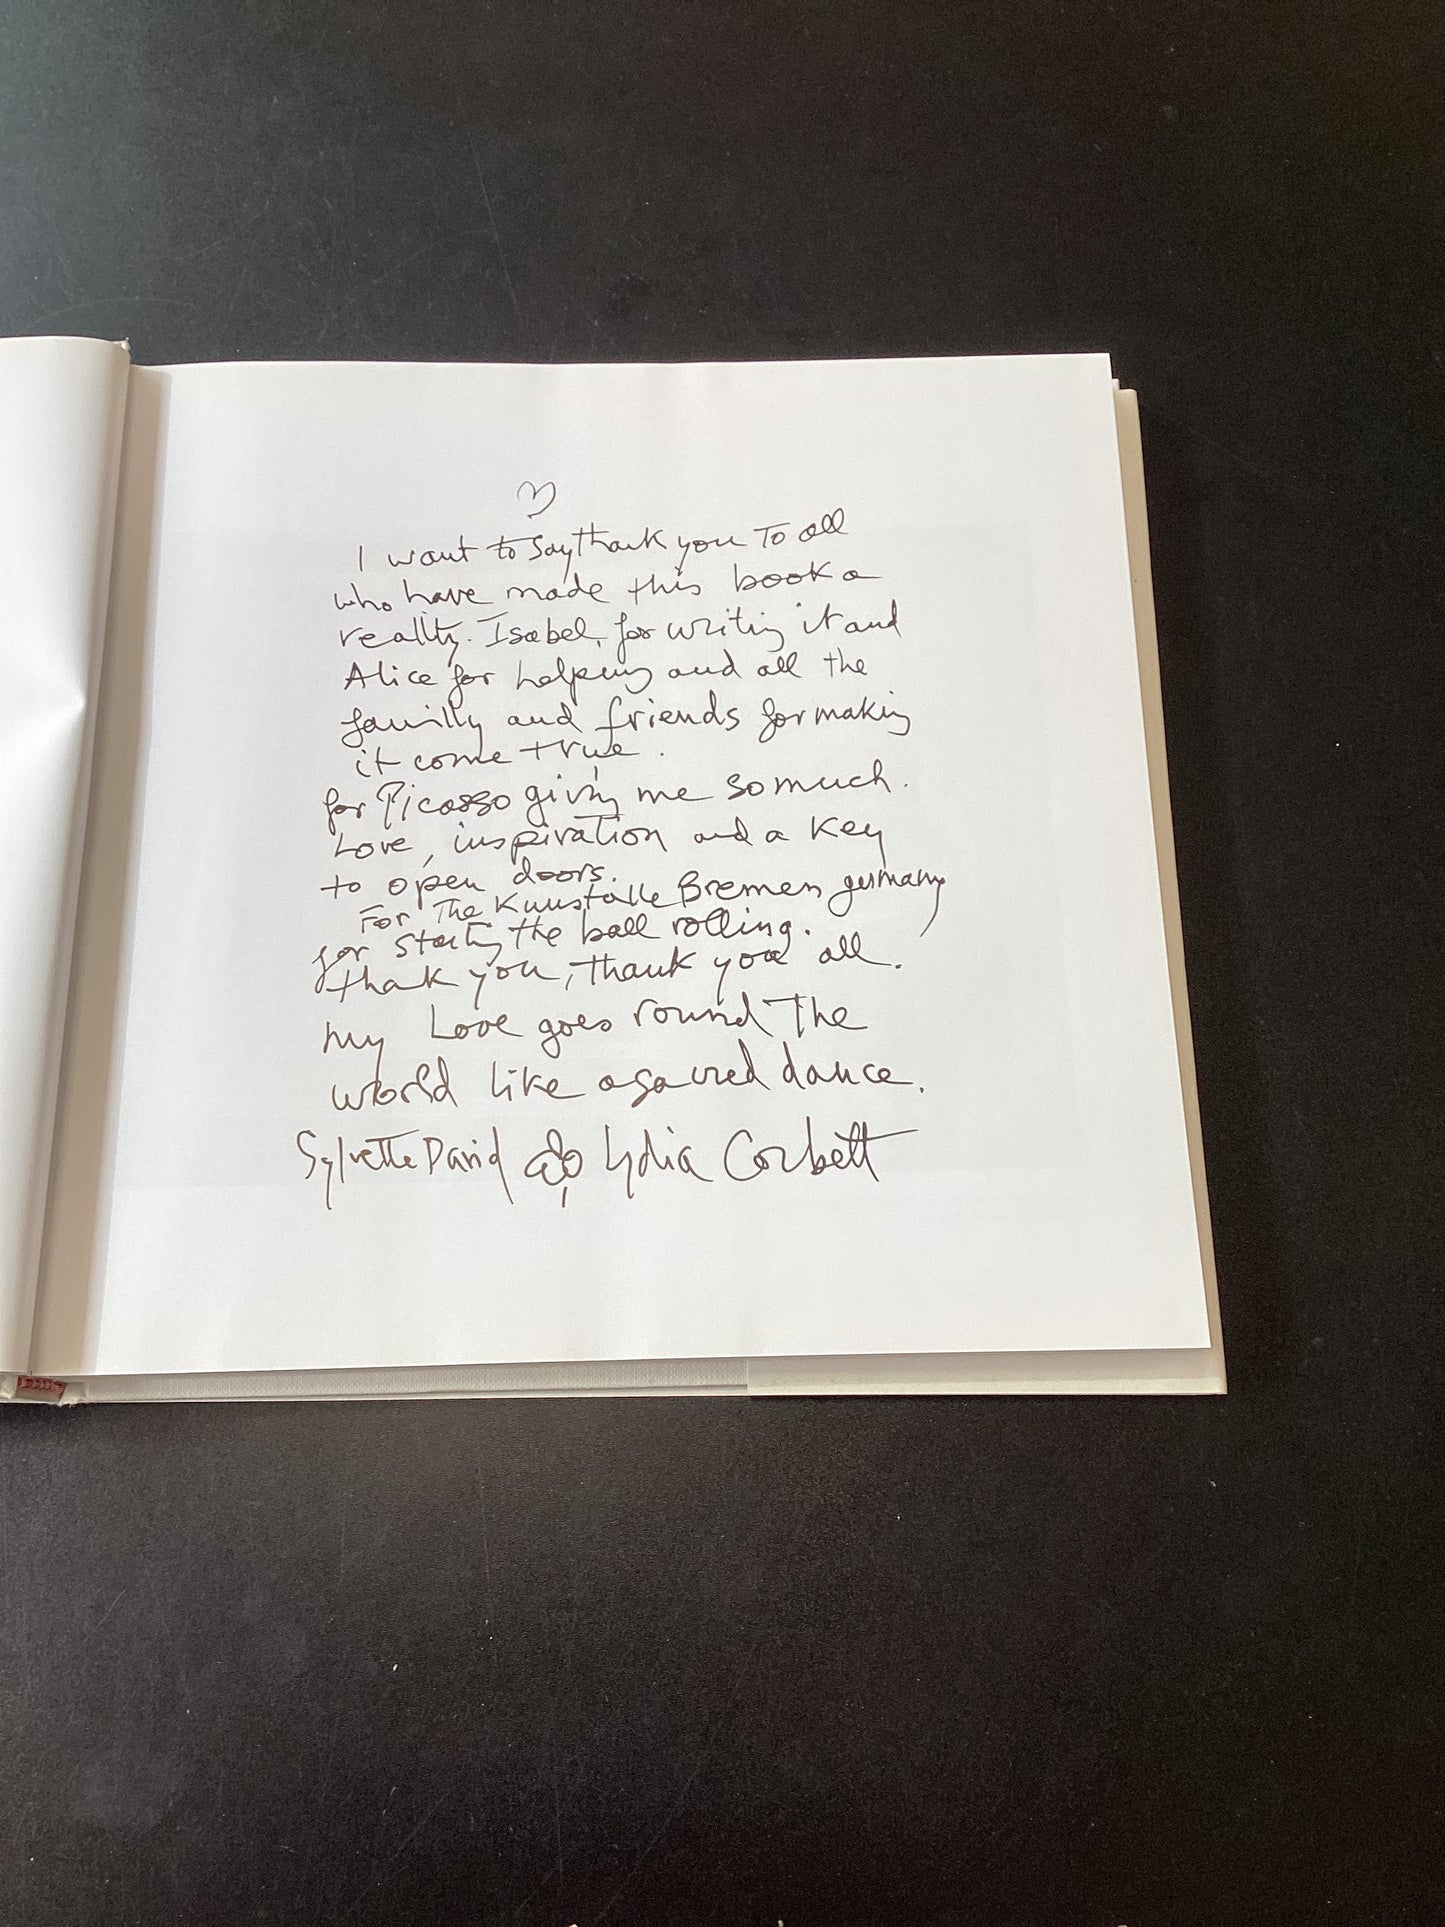 I want to say thank you To all
who have made this book a
reality. Isabel, for writing it and
Alice for helping and all the
familly and friends for making
it come true.
for Picasso giving me so much.
Love, inspiration and a key
to open doors.
For The Kunstalle Bremen germany
for starting the ball rolling.
thank you, thank you all.
my Love goes round The
world like a sacred dance.
Sylvette David Lydia Corbett